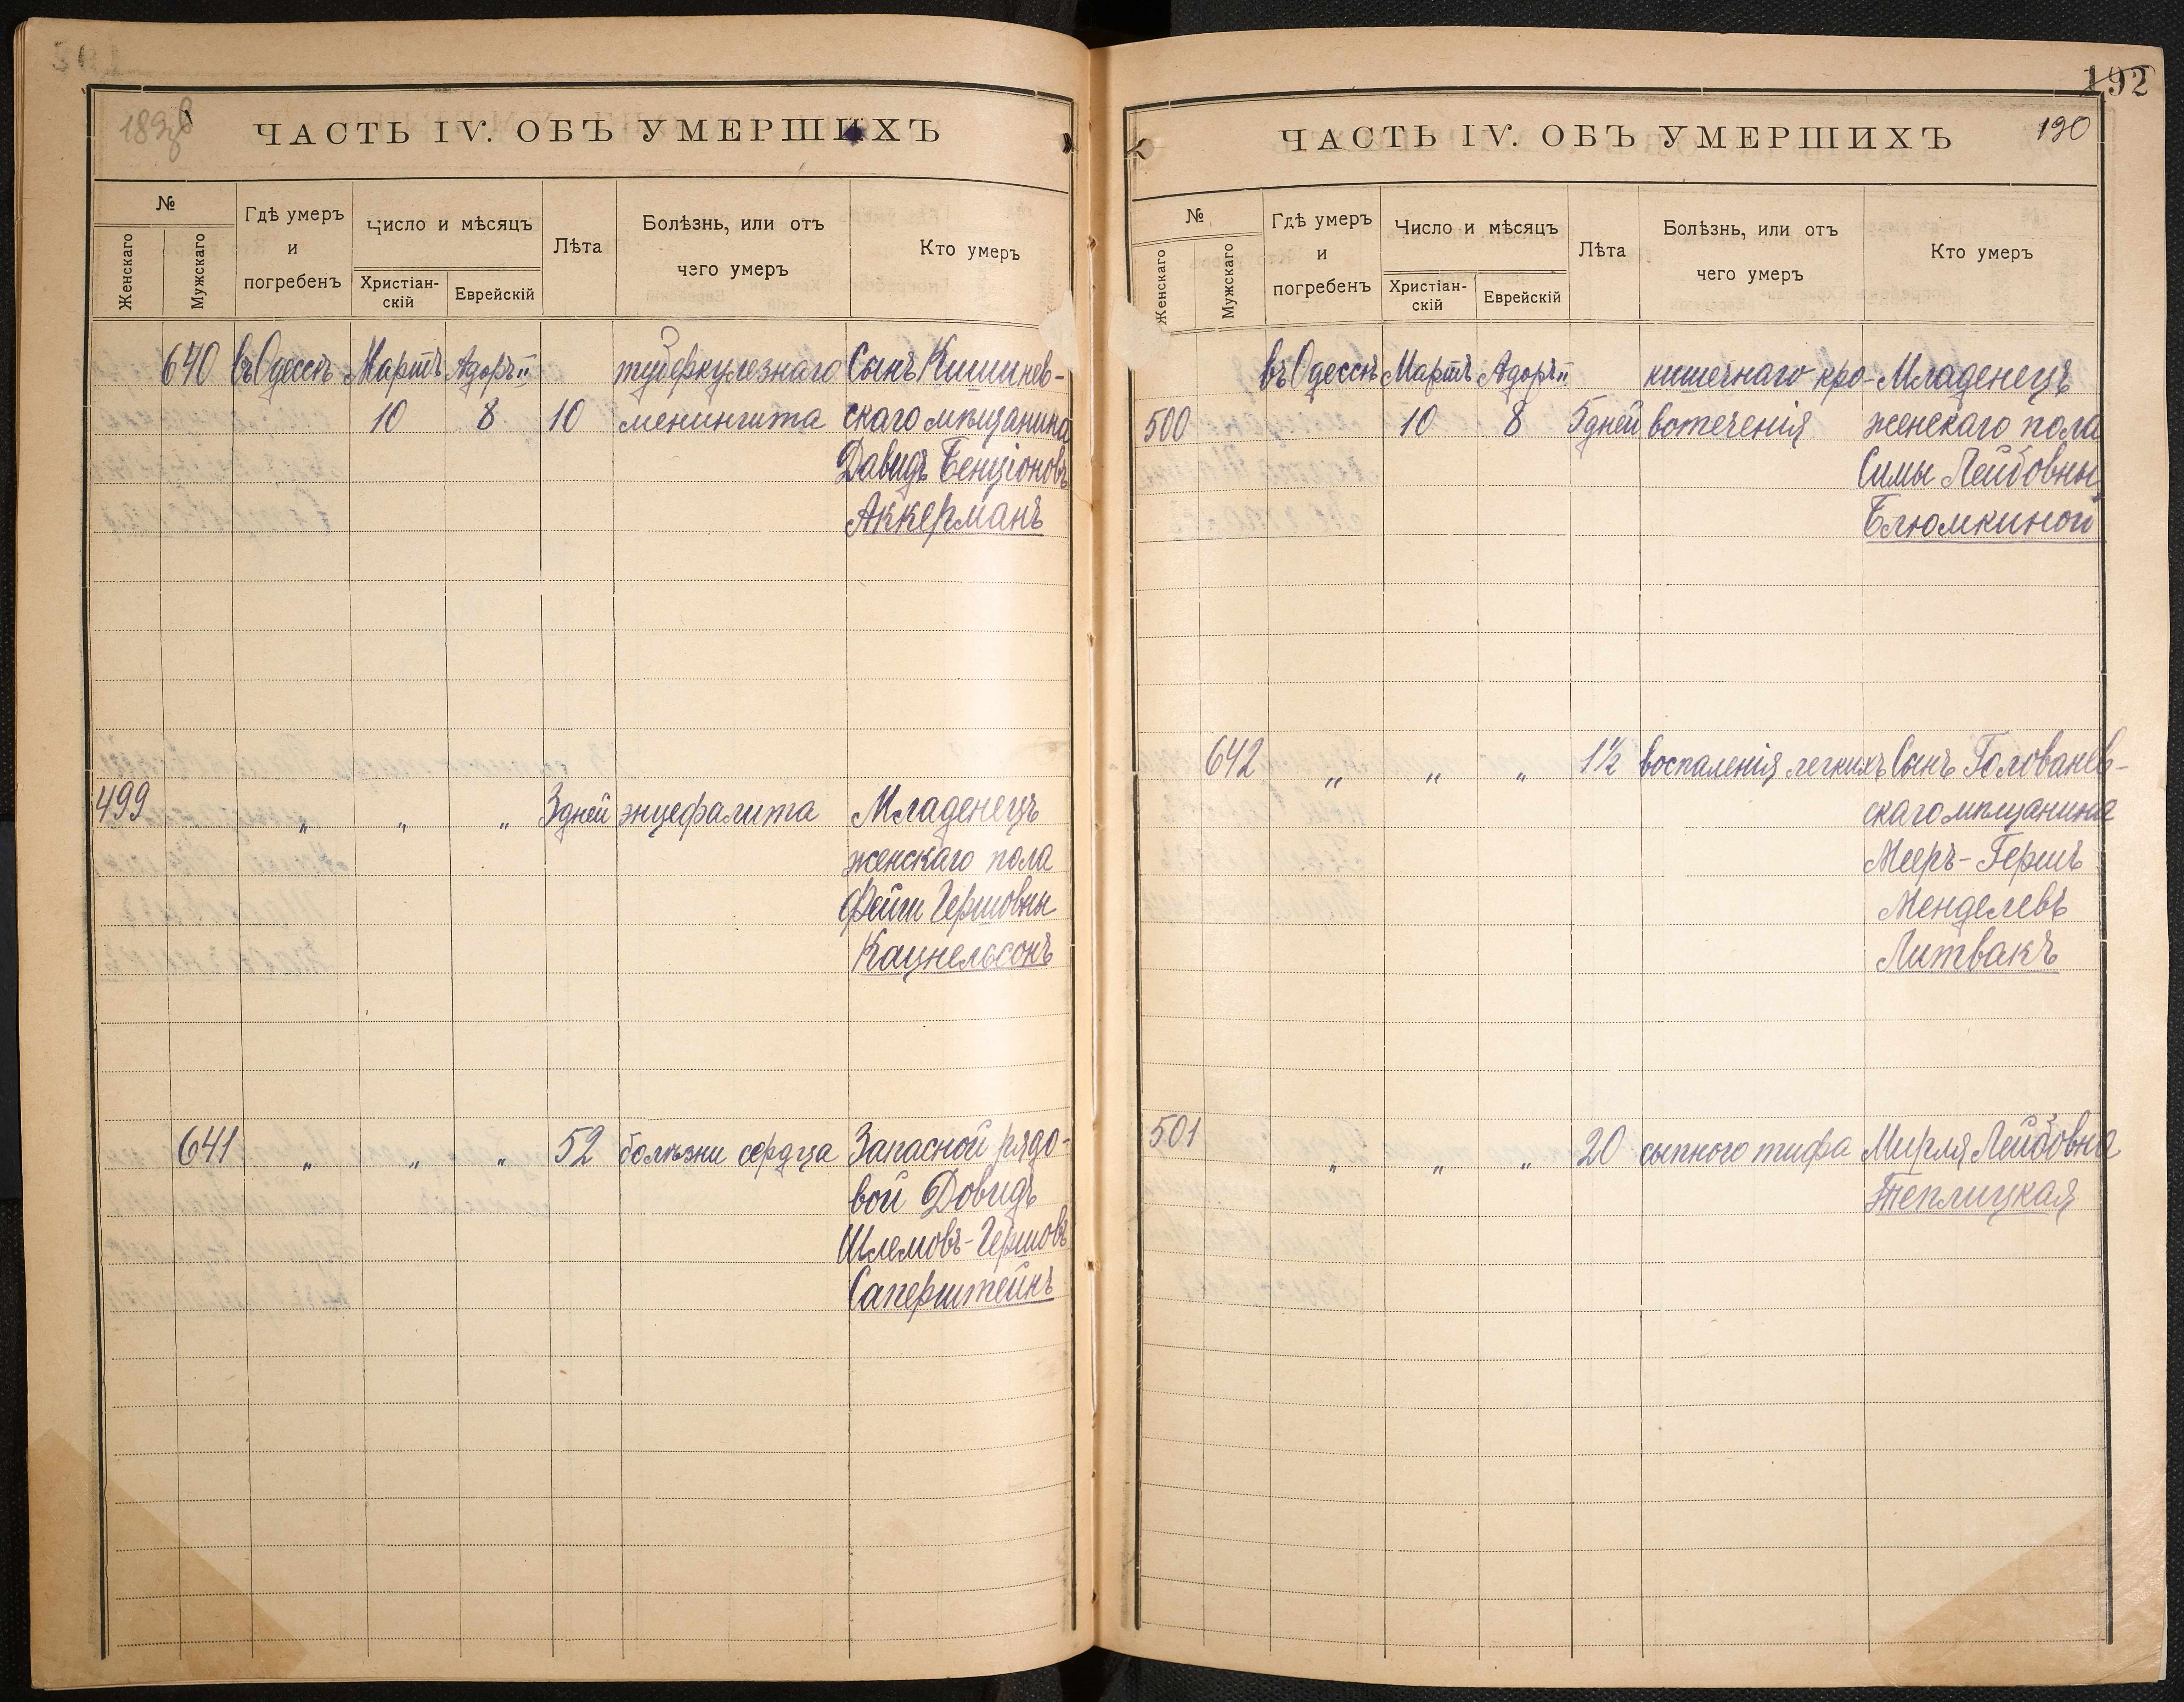 ЧАСТЬ IV. ОБЪ УМЕРШИХЪ
№
Женскаго
Мужскаго
Гдѣ умеръ
и
погребенъ
Число и мѣсяцъ
Христіан-
скій
Еврейскій
Лѣта
Болѣзнь, или отъ
чего умеръ
Кто умеръ
640 въ Одессѣ Мартъ Адоръ II туберкулезнаго Сынъ Кишинев-
10 8 10 менингита скаго мѣщанина
Давидъ Бенціоновъ
Аккерманъ
499 " " " 3 дней энцефалита Младенецъ
женскаго пола
Фейги Гершовны
Кацнельсонъ
641 " " " 52 болѣзни сердца Запасной рядо-
вой Довидъ
Шлемовъ-Гершовъ
Саперштейнъ
192
ЧАСТЬ IV. ОБЪ УМЕРШИХЪ
190
№
Женскаго
Мужскаго
Гдѣ умеръ
и
погребенъ
Число и мѣсяцъ
Христіан-
скій
Еврейскій
Лѣта
Болѣзнь, или отъ
чего умеръ
Кто умеръ
въ Одессѣ Мартъ Адоръ II кишечнаго кро- Младенецъ
500 10 8 5 дней вотеченія женскаго пола
Симы Лейбовны
Блюмкиной
642 " " " 1½ воспаленія легкихъ Сынъ Голованев-
скаго мѣщанина
Мееръ-Гершъ
Менделевъ
Литвакъ
501 " " " 20 сыпного тифа Мирля Лейбовна
Теплицкая